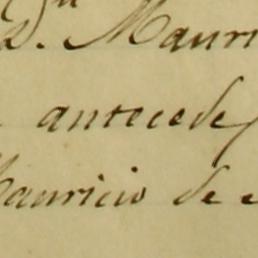 D.n Mauri
antecede
Mauricio de